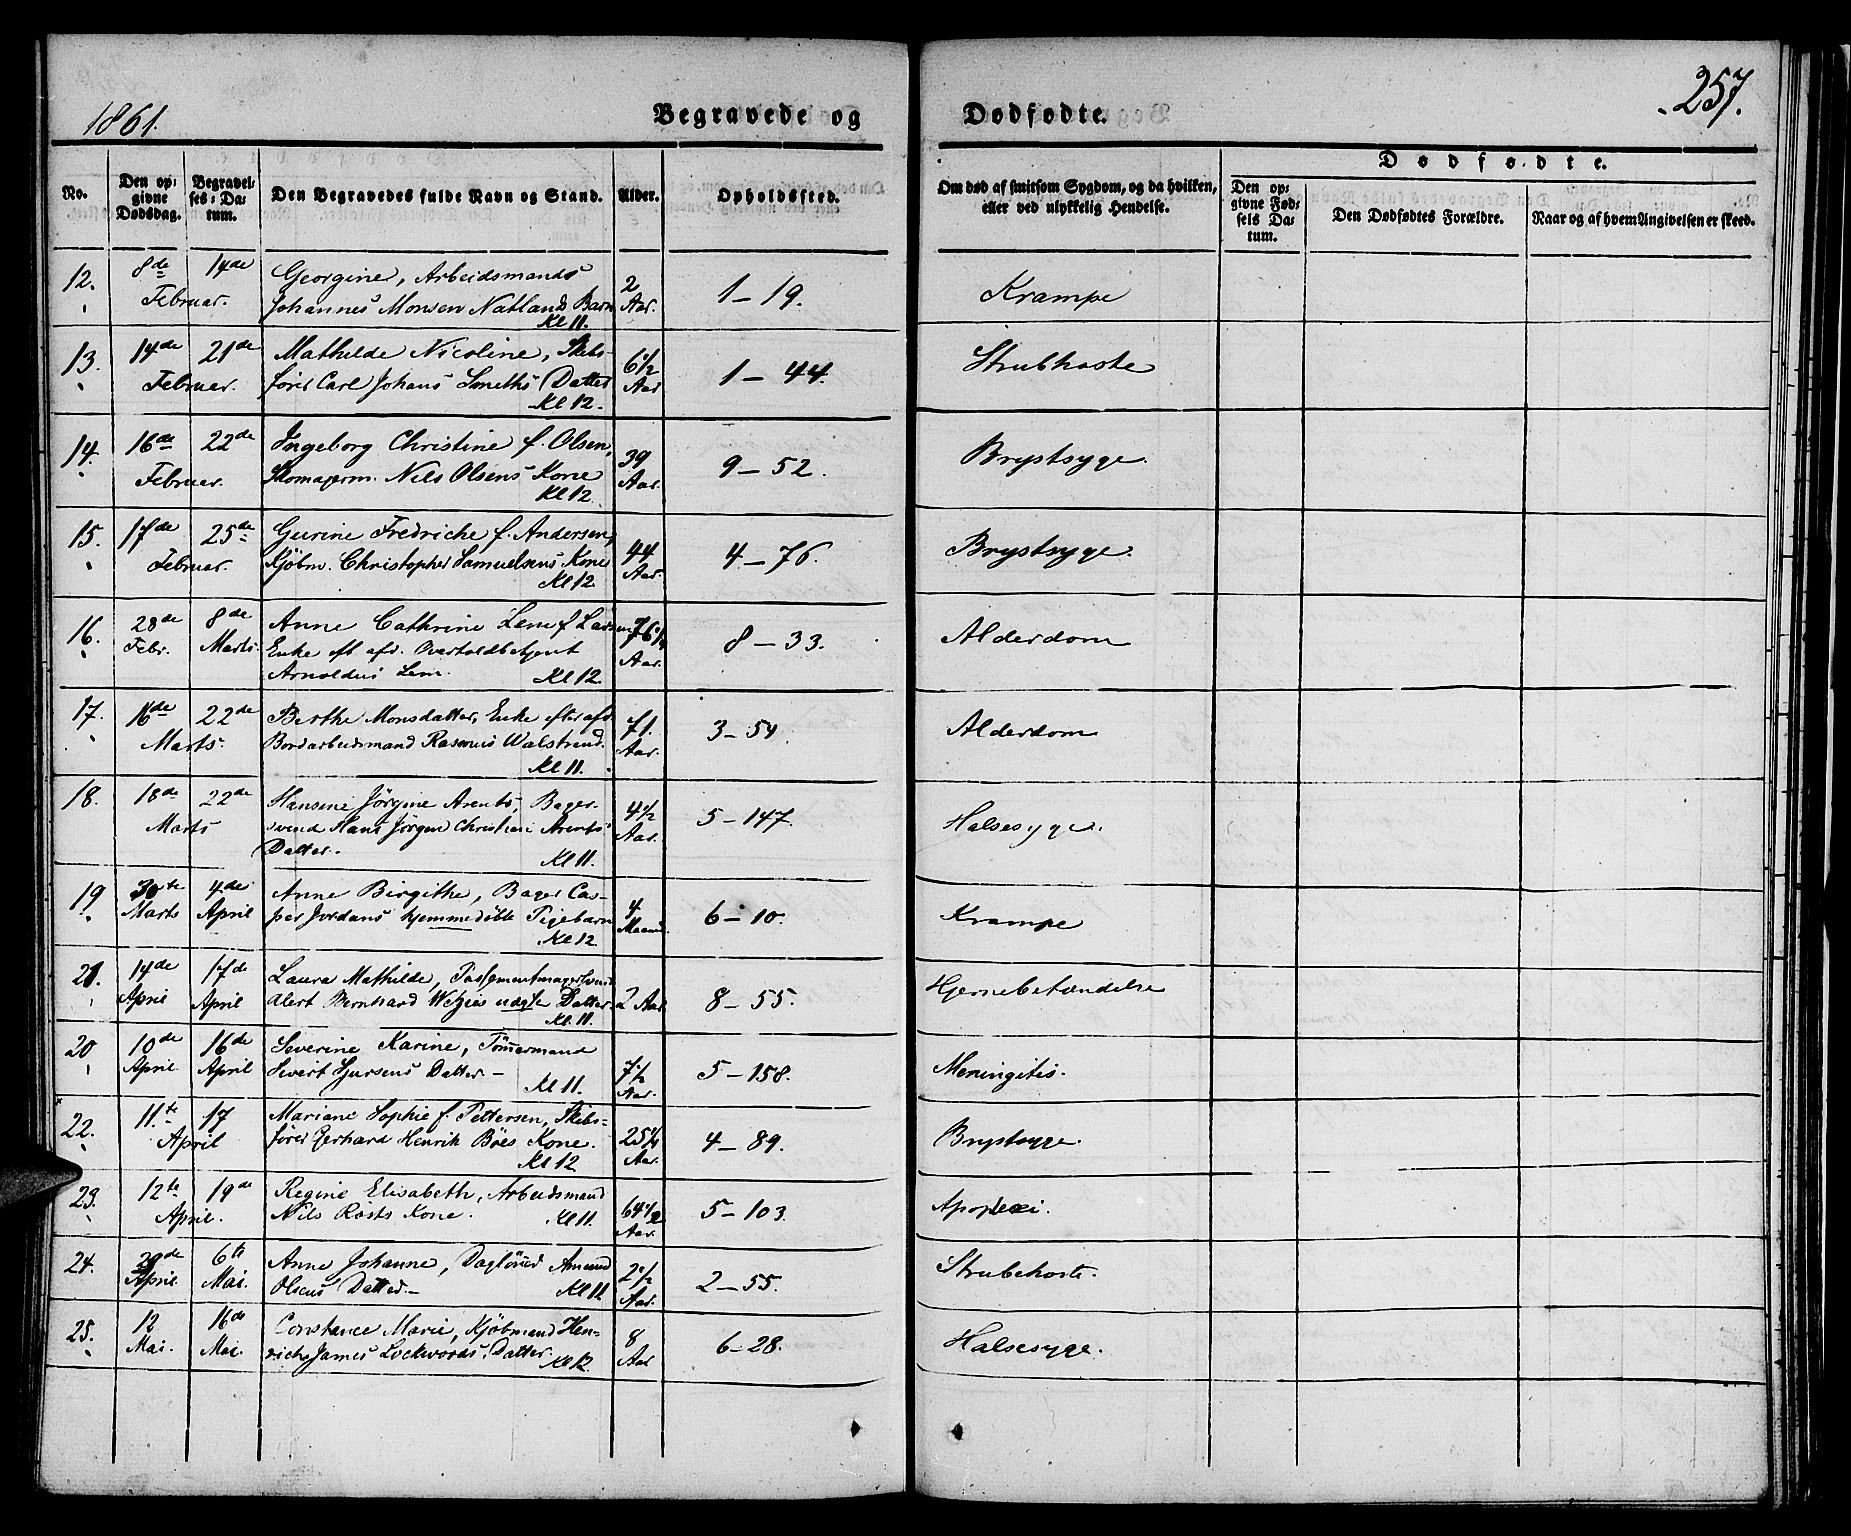 1861.
Begravede og Dødfødte.
257.
No.
Den opgivne Dødsdag.
Begravelses-Datum.
Den Begravedes fulde Navn og Stand.
Alder.
Opholdssted.
Om død af smitsom Sygdom, og da hvilken, eller ved ulykkelig Hendelse.
Dødfødte.
Den opgivne Fødsels Datum.
Den Dødfødtes Forældre.
Naar og af hvem Angivelsen er skeed.
12. 8de 14de Georgine, Arbeidsmands 2 1-19. Krampe
Februar. Johannes Monsen Natlands Barn Aar.
Kl 11.
13. 14de 21de Mathilde Nicoline, Skibs- 6 1/2 1-44. Strubhoste
Februar. fører Carl Johans Smeths Datter Aar
Kl 12.
14. 16de 22de Ingeborg Christine f. Olsen, 39 9-52. Brystsyge.
Februar. Skomagerm. Nils Olsens Kone Aar.
Kl 12.
15. 17de 25de Gurine Fredriche f. Andersen, 44 4-76. Brystsyge.
Februar. Kjøbm. Christopher Samuelsens Kone Aar.
Kl 12.
16. 28de 8de Anne Cathrine Lem f Larsen 76 1/2 8-33. Alderdom
Febr. Marts. Enke eft afd. Overtoldbetjent Aar.
Arnoldus Lem. Kl 12.
17. 16de 22de Berthe Monsdatter, Enke efter afd 71. 3-54. Alderdom
Marts. Bordarbeidsmand Rasmus Walstrand. Aar.
Kl 11.
18. 18de 22de Hansine Jørgine Arents, Bager- 4 1/2 5-147. Halsesyge.
Marts svend Hans Jørgen Christian Arents Aar.
Datter. Kl 11.
19 30te 4de Anne Birgithe, Bager Cas- 4 6-10. Krampe
Marts April per Jordans hjemmedøbte Pigebarn Maaned
Kl 12.
21. 14de 17de Laura Mathilde, Possementmagersvend 8-55. Hjernebetændelse
April April Alert Bernhard uægte Datter. 2 Aar
Kl. 11.
20 10de 16de Severine Karine, Tømmermand 7 1/2 5-158. Meningitis.
April. April Sivert Datter.- Aar.
Kl 11.
22. 11te 17 Mariane Sophie f. Pettersen, Skibs- 25 1/4 4-89. Brystsyge.
April fører Gerhard Henrik Böes Kone. Aar.
Kl 12
23. 12te 19de Regine Elisabeth, Arbeidsmand 64 1/2 5-103. Apoplexi.
April. Nils Kone. Kl 11. Aar.
24. 6te Anne Johanne, Dagløner Amund 2 1/2 2-55. Strubehoste.
April Mai. Olsens Datter.- Kl 11 Aar.
25. 12 16de Constance Marie, Kjøbmand Hen- 8 6-28. Halsesyge.
Mai. Mai. richs James Lockwoods. Datter. Aar
Kl 12.